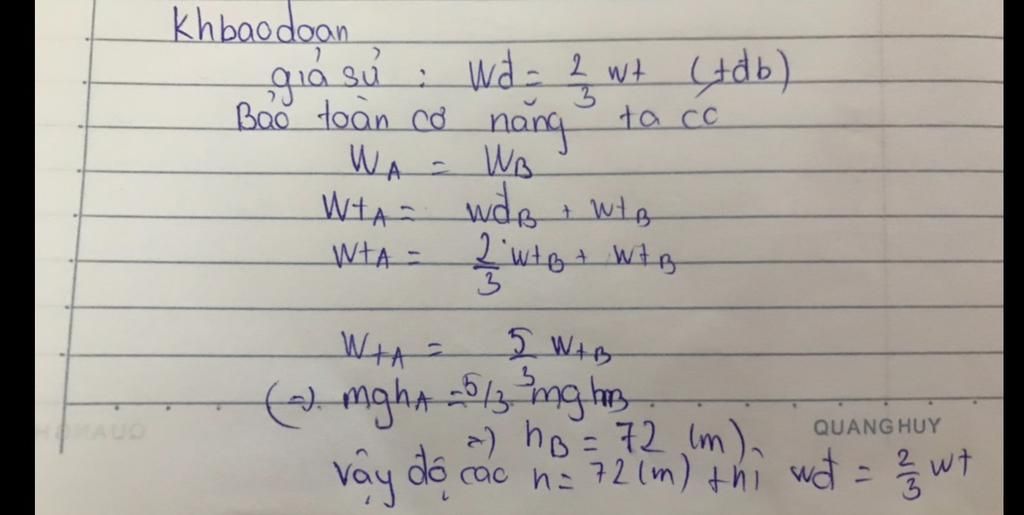 Khbaodoan
giả sử : Wđ = 2/3 wt (tđb)
Bảo toàn cơ năng ta có
WA = WB
WtA = wđB + wtB
WtA = 2/3 wtB + wtB
WtA = 5/3 WtB
(=) mghA = 5/3. mghB
=) hB = 72 (m).
QUANG HUY
vậy độ các h= 72 (m) thì wđ = 2/3 wt